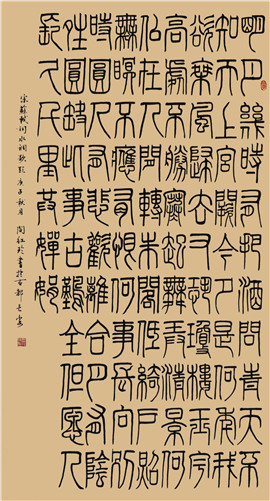 明月幾時有把酒問青天不
知天上宮闕今夕是何年我
欲乘風歸去又恐瓊樓玉宇
高處不勝寒起舞弄清影何
似在人間轉朱閣低綺戶照
無眠不應有恨何事長向別
時圓人有悲歡離合月有陰
晴圓缺此事古難全但願人
長久千里共嬋娟
宋蘇軾詞水調歌頭 庚子秋月 紅玲書於古都長安